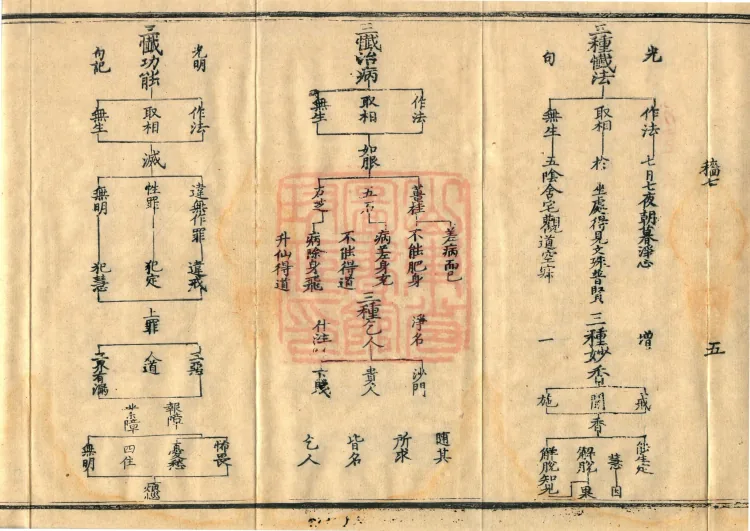 墻七
五
三種懺法
光
句
作法
取相
無生
七日七夜朝暮淨心
於坐處得見文殊普賢
五陰舍宅觀道空寂
三種妙香
增
一
戒
聞
施
香
能生定
慧
因
解脫
果
解脫知見
三懺治病
作法
取相
無生
如服
薑桂
五石
石芝
差病而已
不能肥身
病差身充
不能得道
病除身飛
升仙得道
三種乞人
淨名
什注
沙門
貴人
下賤
隨其
所求
皆名
乞人
三懺功能
光明
句記
作法
取相
無生
滅
違無作罪
性罪
無明
違戒
犯定
犯慧
上罪
三惡
人道
三界有漏
報障
業障
怖畏
憂愁
四住
無明